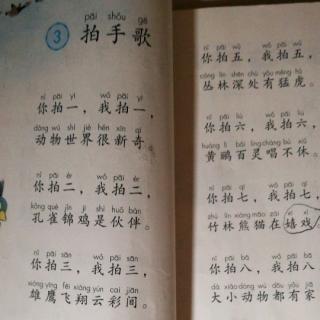 3 拍手歌
pāi shǒu gē
nǐ pāi yī
你拍一，我拍一，
dòng wù shì jiè hěn xīn qí
动物世界很新奇。
nǐ pāi èr
你拍二，我拍二，
kǒng què jǐn jī shì huǒ bàn
孔雀锦鸡是伙伴。
nǐ pāi sān
你拍三，我拍三，
xióng yīng fēi xiáng yún cai jiān
雄鹰飞翔云彩间。
nǐ pāi wǔ
你拍五，我拍五，
cóng lín shēn chù yǒu měng hǔ
丛林深处有猛虎。
nǐ pāi liù
你拍六，我拍六，
huáng lí bǎi líng chàng bù xiū
黄鹂百灵唱不休。
nǐ pāi qī
你拍七，我拍七，
zhú lín xióng māo zài xī xì
竹林熊猫在嬉戏。
nǐ pāi bā
你拍八，我拍八
dà xiǎo dòng wù dōu yǒu jiā
大小动物都有家